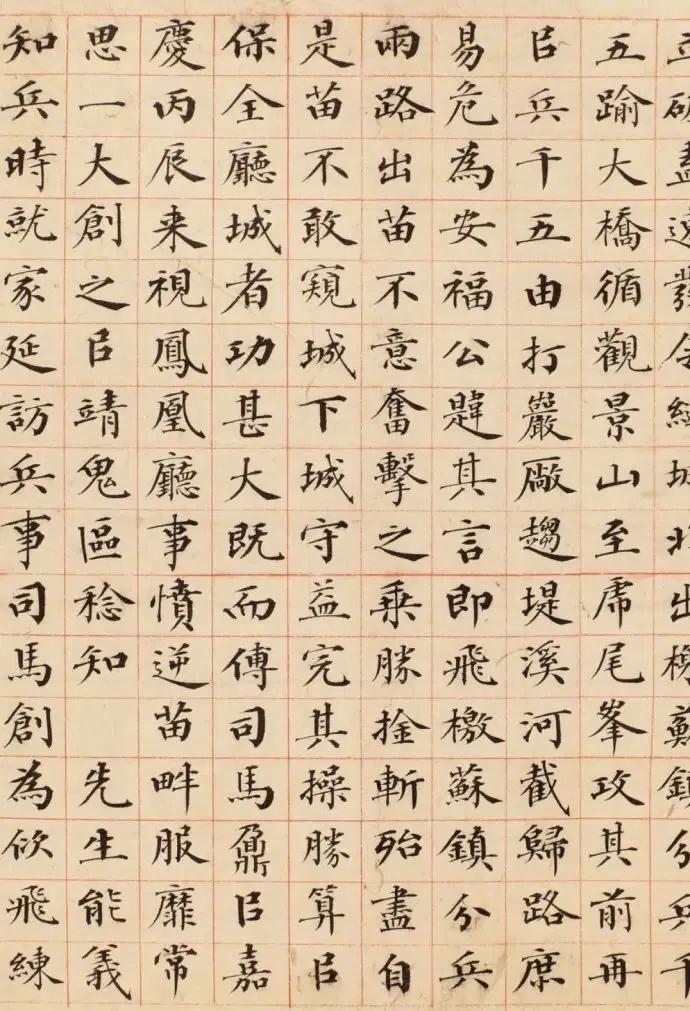 盡發令城北出鎮分兵千
五踰大橋循觀景山至虎尾峯攻其前再
㠯兵千五由打巖厰趨堤溪河截歸路庶
易危為安福公韙其言即飛檄蘇鎮分兵
兩路出苗不意奮擊之乗勝擒斬殆盡自
是苗不敢窺城下城守益完其操勝算㠯
保全廳城者功甚大既而傅司馬鼐㠯嘉
慶丙辰来視鳳凰廳事憤逆苗畔服靡常
思一大創之㠯靖鬼區稔知 先生能義
知兵時就家延訪兵事司馬創為佽飛練